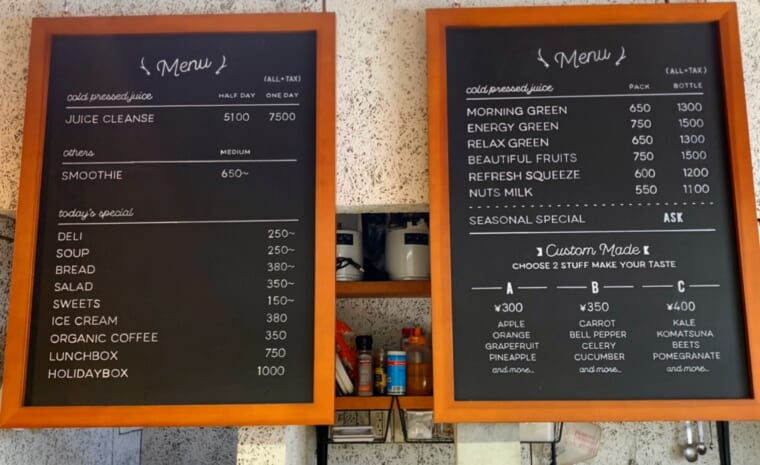 Menu
(ALL+TAX)
cold pressed juice HALF DAY ONE DAY
JUICE CLEANSE 5100 7500
others MEDIUM
SMOOTHIE 650~
today's special
DELI 250~
SOUP 250~
BREAD 380~
SALAD 350~
SWEETS 150~
ICE CREAM 380
ORGANIC COFFEE 350
LUNCHBOX 750
HOLIDAYBOX 1000
Menu
(ALL+TAX)
cold pressed juice PACK BOTTLE
MORNING GREEN 650 1300
ENERGY GREEN 750 1500
RELAX GREEN 650 1300
BEAUTIFUL FRUITS 750 1500
REFRESH SQUEEZE 600 1200
NUTS MILK 550 1100
SEASONAL SPECIAL ASK
Custom Made
CHOOSE 2 STUFF MAKE YOUR TASTE
A B C
¥300 ¥350 ¥400
APPLE CARROT KALE
ORANGE BELL PEPPER KOMATSUNA
GRAPEFRUIT CELERY BEETS
PINEAPPLE CUCUMBER POMEGRANATE
and more... and more... and more...